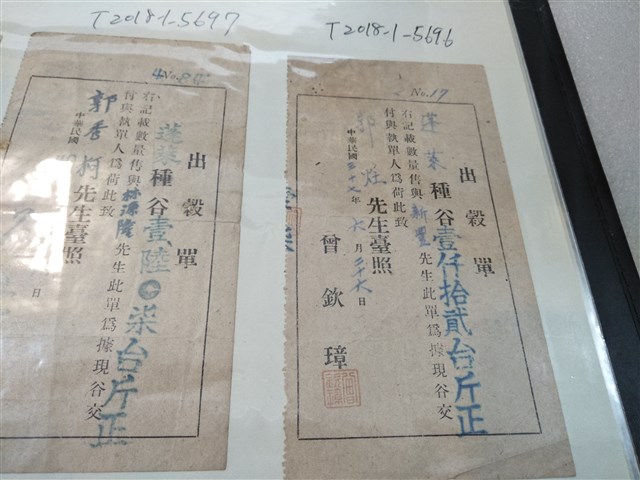 T2018-1-5697
T2018-1-5696
No.17
出穀單
蓬萊種谷壹仟拾貳台斤正
右記載數量售與新豐先生此單為據現谷交
付與執單人為荷此致
郭 先生臺照
中華民國三十七年六月二十六日
曾欽璋
4No.
出穀單
蓬萊種谷壹陸〇柒台斤正
右記載數量售與 隆先生此單為據現谷交
付與執單人為荷此致
郭秀柯先生臺照
中華民國
日